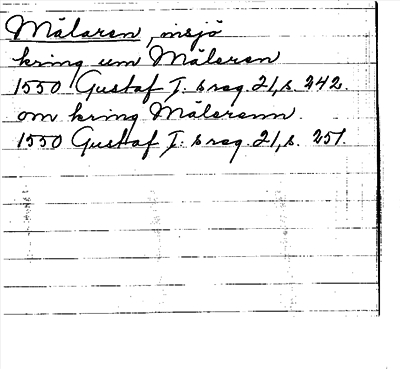 Mälaren, insjö
kring um Mäleren
1550 Gustaf I. s reg. 21, s. 242.
om kring Mälerenn.
1550 Gustaf I. s reg. 21, s. 251.